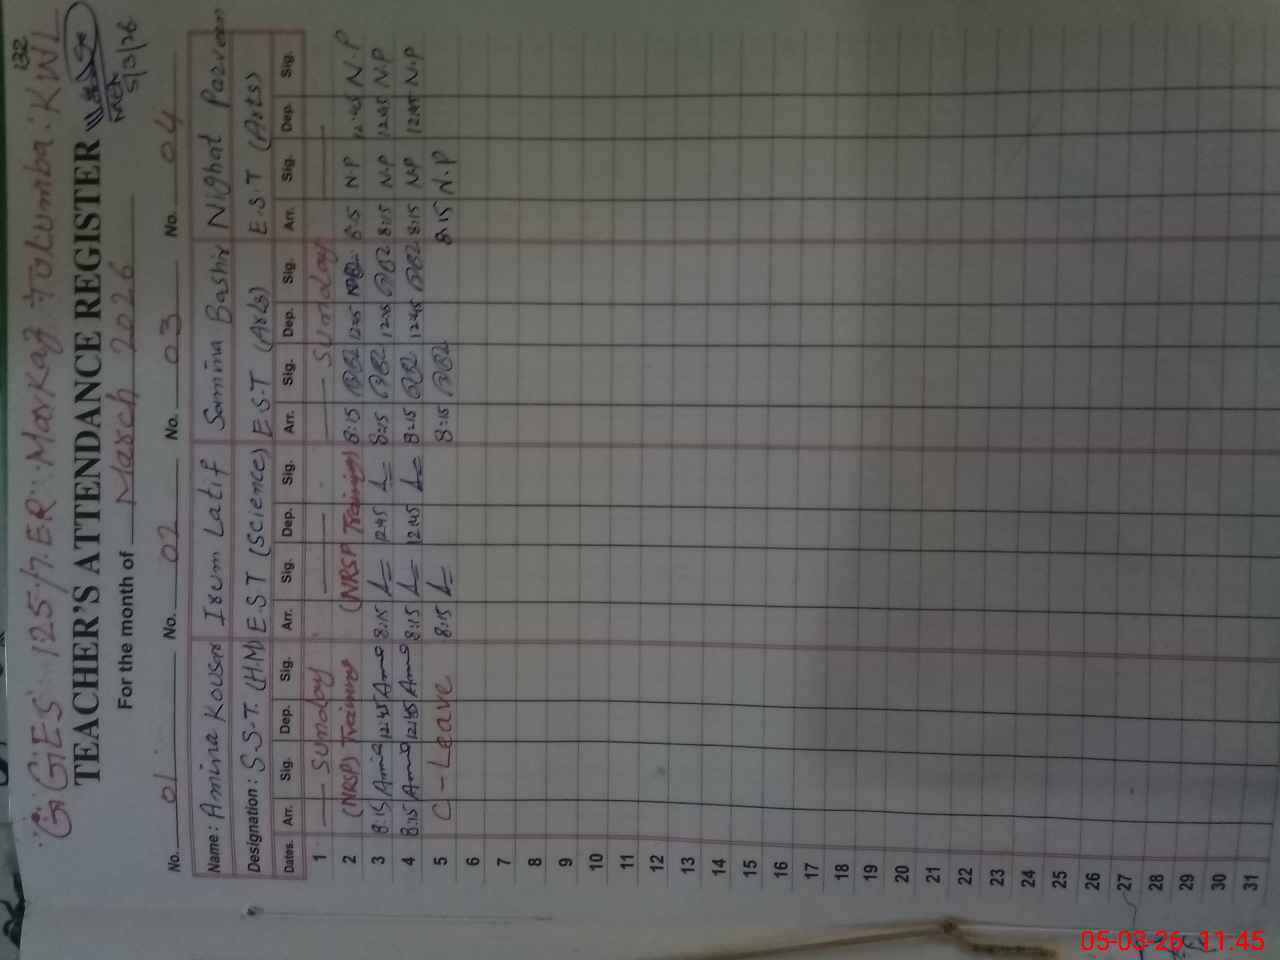 GGES 125/7.ER Markaz Tolumba KWL
132
TEACHER'S ATTENDANCE REGISTER
5/3/26
For the month of March 2026
No. 01 No. 02 No. 03 No. 04
Name: Amina Kousar Irum Latif Samina Bashir Nighat Parveen
Designation: S.S.T. (H.M) E.S.T (Science) E.S.T (Arts) E.S.T (Arts)
Dates. Arr. Sig. Dep. Sig. Arr. Sig. Dep. Sig. Arr. Sig. Dep. Sig. Arr. Sig. Dep. Sig.
1 Sunday Sunday
2 (NRSP) Training (NRSP Training) 8:15 12:45 8:15 N.P 12:45 N.P
3 8:15 Amna 12:45 Amna 8:15 12:45 8:15 12:45 8:15 N.P 12:45 N.P
4 8:15 Amna 12:45 Amna 8:15 12:45 8:15 12:45 8:15 N.P 12:45 N.P
5 C-Leave 8:15 8:15 8:15 N.P
6
7
8
9
10
11
12
13
14
15
16
17
18
19
20
21
22
23
24
25
26
27
28
29
30
31
05-03-26 11:45